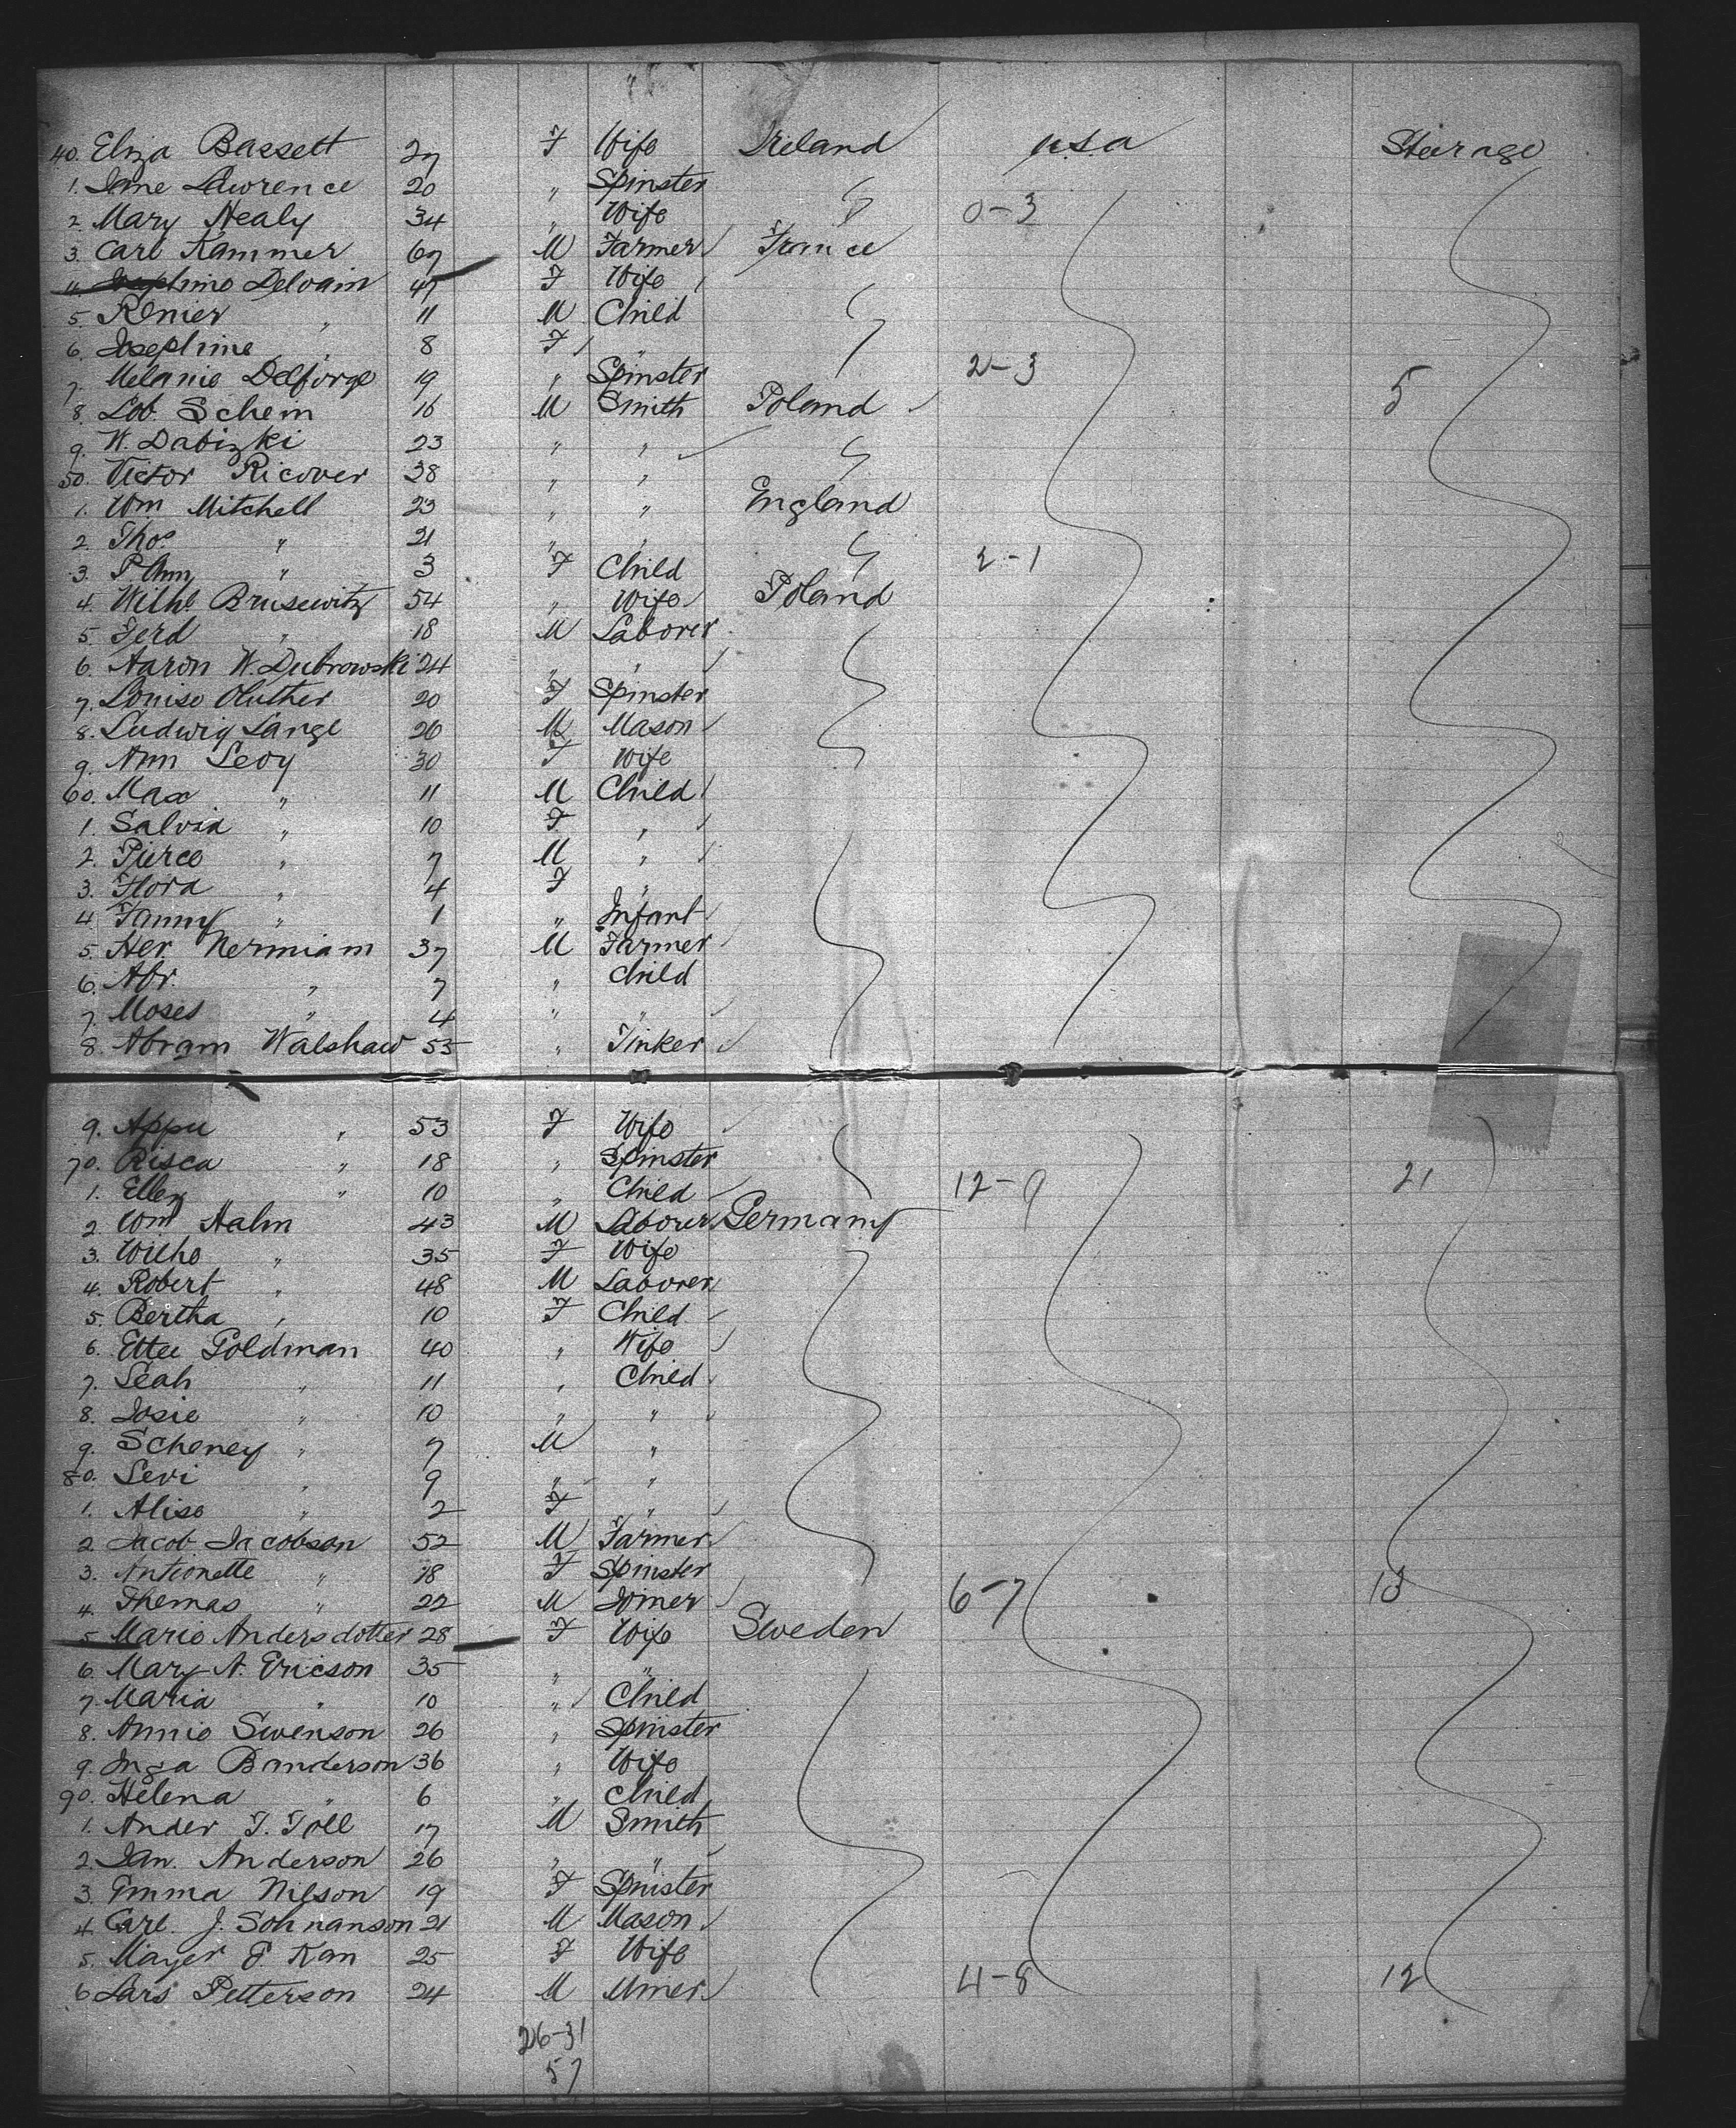 40. Eliza Bassett 27 F Wife Ireland U.S.A Steerage
1. Jane Lawrence 20 " Spinster
2. Mary Nealy 34 " Wife 0-3
3. Carl Kammer 67 M Farmer France
4. Josephine Delvain 47 F Wife
5. Renier " 11 M Child
6. Josephine " 8 F "
7. Melanie Delforge 19 " Spinster 2-3
8. Lob Schein 16 M Smith Poland 5
9. W. Dabizki 23 " "
50. Victor Ricover 38 " "
1. Wm Mitchell 23 " " England
2. Thos " 21 " "
3. P Ann " 3 F Child 2-1
4. Wilh. Brusewitz 54 " Wife Poland
5. Ferd " 18 M Laborer
6. Aaron W. Dubrowski 24 " "
7. Louise Oluther 20 F Spinster
8. Ludwig Lange 26 M Mason
9. Ann Levy 30 F Wife
60. Max " 11 M Child
1. Salvia " 10 F "
2. Pierce " 7 M "
3. Flora " 4 F "
4. Fanny " 1 " Infant
5. Her. Nermiam 37 M Farmer
6. Abr. " 7 " Child
7. Moses " 4 " "
8. Abram Walshaw 55 " Tinker
9. Appu " 53 F Wife
70. Risca " 18 " Spinster
1. Ellen " 10 " Child 12-9 21
2. Wm Halm 43 M Laborer Germany
3. Wilhe " 35 F Wife
4. Robert " 48 M Laborer
5. Bertha " 10 F Child
6. Ettee Goldman 40 " Wife
7. Leah " 11 " Child
8. Josie " 10 " "
9. Scheney " 7 M "
80. Levi " 9 " "
1. Alise " 2 F "
2. Jacob Jacobson 52 M Farmer
3. Antionette " 18 F Spinster
4. Themas " 22 M Joiner 6-7 13
5. Marie Andersdotter 28 F Wife Sweden
6. Mary A. Ericson 35 " "
7. Maria " 10 " Child
8. Annie Swenson 26 " Spinster
9. Inga Banderson 36 " Wife
90. Helena " 6 " Child
1. Ander T. Toll 17 M Smith
2. Jan. Anderson 26 " "
3. Emma Nilson 19 F Spinster
4. Carl. J. Sohnanson 21 M Mason
5. Mayer P. Kan 25 F Wife
6. Lars Petterson 24 M Miner 4-8 12
26-31
57